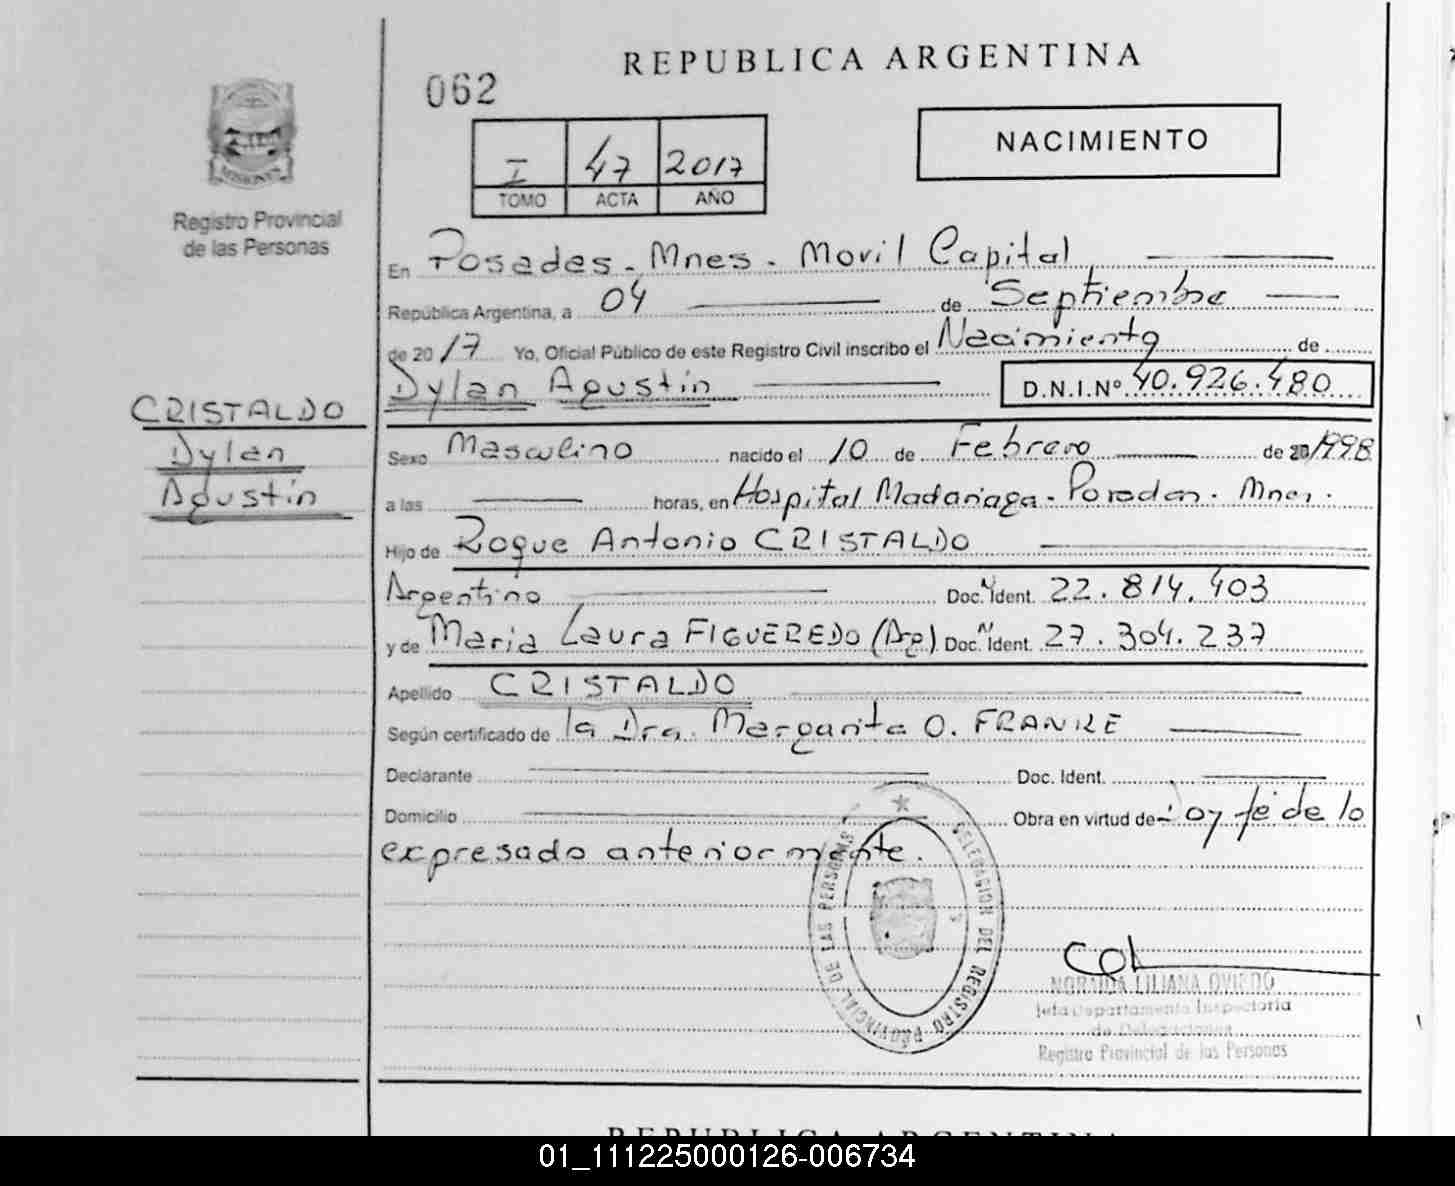 REPUBLICA ARGENTINA
062
NACIMIENTO
I 47 2017
TOMO ACTA AÑO
MISIONES
Registro Provincial
de las Personas
En Posadas - Mnes - Movil Capital
República Argentina, a 04 de Septiembre
de 2017 Yo, Oficial Público de este Registro Civil inscribo el Nacimiento de
Dylan Agustín D.N.I.Nº 40.926.480
CRISTALDO
Dylan
Agustín
Sexo Masculino nacido el 10 de Febrero de 20 1998
a las horas, en Hospital Madariaga - Posadas - Mnes.
Hijo de Roque Antonio CRISTALDO
Argentino Doc. N Ident. 22.814.403
y de Maria Laura FIGUEREDO (Arg) Doc. N Ident. 27.304.237
Apellido CRISTALDO
Según certificado de la Dra. Margarita O. FRANKE
Declarante Doc. Ident.
Domicilio Obra en virtud de - Doy fe de lo
expresado anteriormente.
DELEGACION DEL REGISTRO PROVINCIAL DE LAS PERSONAS
LILIANA OVIEDO
Jefa Departamento Inspectoria
de Delegaciones
Registro Provincial de las Personas
REPUBLICA ARGENTINA
01_111225000126-006734